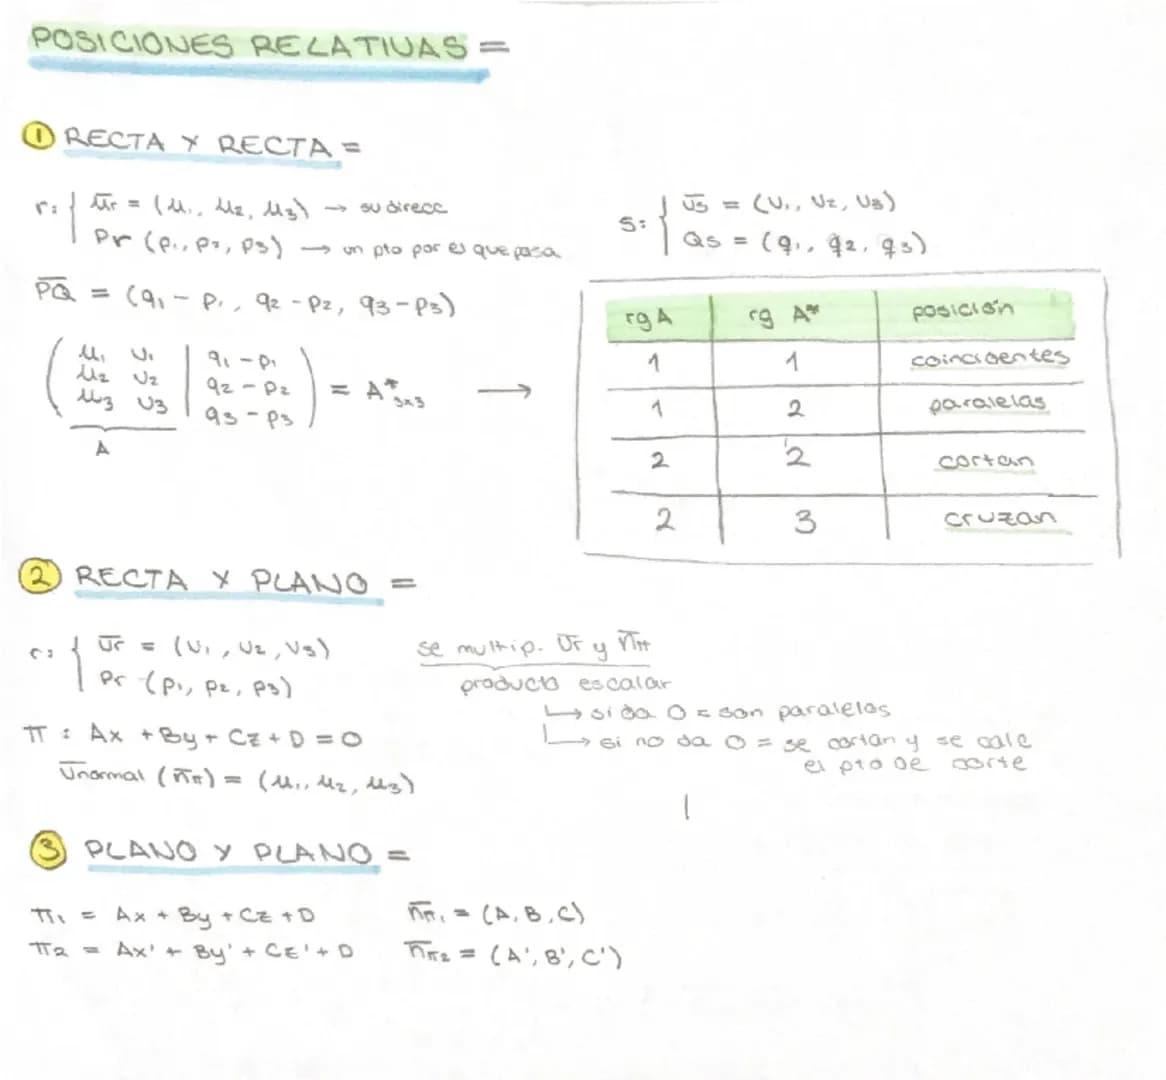 POSICIONES RELATIVAS =
① RECTA Y RECTA =
r: { ūr = (u₁, u₂, u₃) → su direcc
Pr (p₁, p₂, p₃) → un pto por el que pasa
s: { v̄s = (v₁, v₂, v₃)
Qs = (q₁, q₂, q₃)
P̄Q̄ = (q₁ - p₁, q₂ - p₂, q₃ - p₃)
u₁ v₁ | q₁ - p₁
u₂ v₂ | q₂ - p₂ = A*₃ₓ₃ →
u₃ v₃ | q₃ - p₃
A
rg A rg A* posición
1 1 coincidentes
1 2 paralelas
2 2 cortan
2 3 cruzan
② RECTA Y PLANO =
r: { v̄r = (v₁, v₂, v₃)
Pr (p₁, p₂, p₃)
π : Ax + By + Cz + D = 0
v̄normal (n̄π) = (u₁, u₂, u₃)
se multip. v̄r y n̄π
producto escalar
↳ si da 0 = son paralelos
↳ si no da 0 = se cortan y se calc
el pto de corte
③ PLANO Y PLANO =
π₁ = Ax + By + Cz + D n̄π₁ = (A, B, C)
π₂ = Ax' + By' + Cz' + D n̄π₂ = (A', B', C')